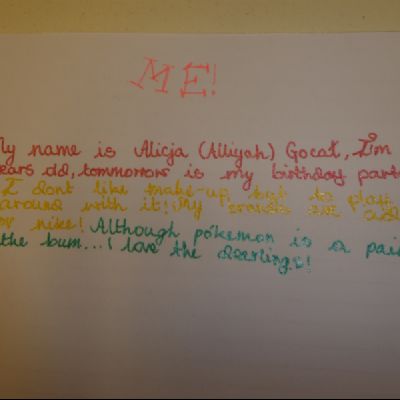 ME!
My name is Alicja (Alliyah) Gocał, I'm
ears old, tommorrow is my birthday part
I dont like make-up, but to play
around with it! My are
or nike! Although pokemon is a pai
the bum... I love the deerlings!